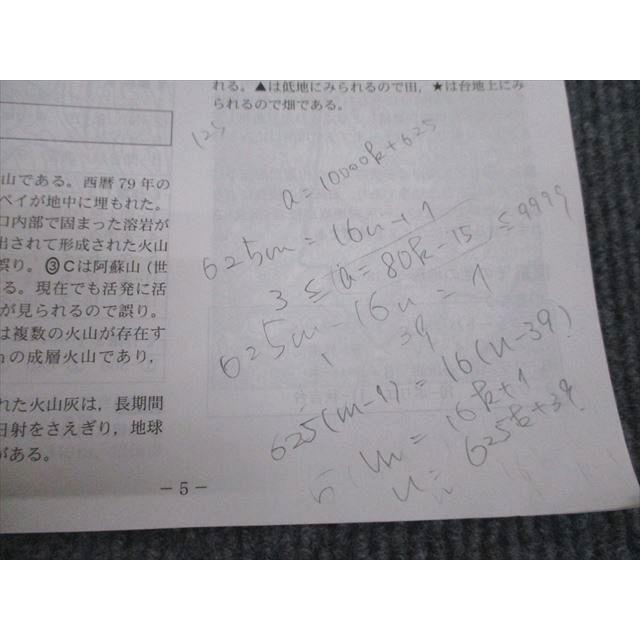 れる。▲は低地にみられるので田，★は台地上にみ
られるので畑である。
山である。西暦 79 年の
ペイが地中に埋もれた。
口内部で固まった溶岩が
出されて形成された火山
誤り。③Cは阿蘇山 (世
る。現在でも活発に活
が見られるので誤り。
は複数の火山が存在す
mの成層火山であり，
れた火山灰は，長期間
日射をさえぎり，地球
がある。
125
a=10000k+625
625m=16n+1
3≦a=80k-15≦9999
625m-16n=1
1 39
625(m-1)=16(n-39)
m=16k+1
n=625k+39
－5－